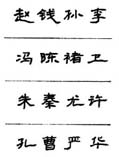 赵钱孙李
冯陈褚卫
朱秦尤许
孔曹严华